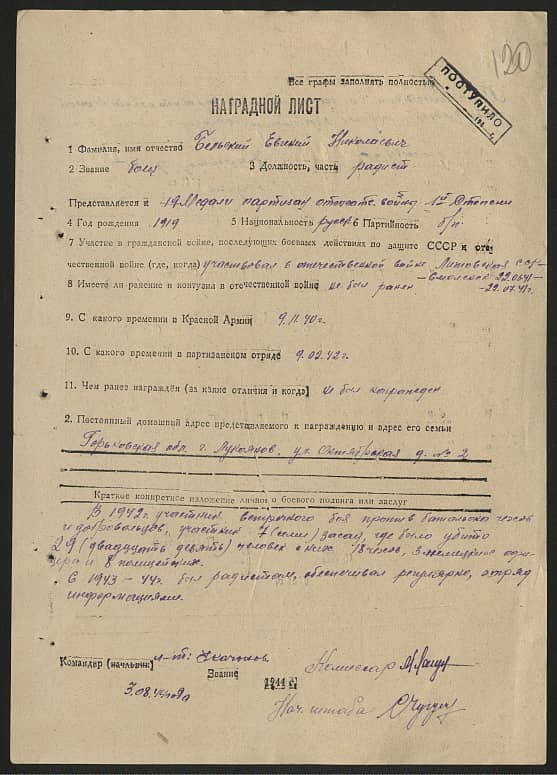 120
Все графы заполнять полностью
ПОСТУПИЛО
194 г.
НАГРАДНОЙ ЛИСТ
1 Фамилия, имя отчество Бельский Евгений Николаевич
2 Звание боец 3 Должность, часть радист
Представляется к Медали партизан отечеств. войны 1ой Степени
4 Год рождения 1919 5 Национальность русск 6 Партийность б/п
7 Участие в гражданской войне, последующих боевых действиях по защите СССР и оте-
чественной войне (где, когда) участвовал в отечественной войне Литовская ССР –
– Смоленск 22.06.41 –
8 Имеете ли ранение и контузии в отечественной войне не был ранен – 22.07.41г.
9. С какого времени в Красной Армии 9.11.40г.
10. С какого времени в партизанском отряде 9.02.42г.
11. Чем ранее награждён (за какие отличия и когда) не был награжден
2. Постоянный домашний адрес представляемого к награждению и адрес его семьи
Горьковская обл. г. Лукоянов. ул. Октябрьская д. № 2
Краткое конкретное изложение личного боевого подвига или заслуг
В 1942г. участник встречного боя против батальона чехов
и добровольцев, участник 7 (семи) засад, где было убито
29 (двадцать девять) человек из них 18 чехов, 3 немецких офи-
цера и 8 полицейских.
С 1943 – 44г. был радистом, обеспечивал регулярно отряд
информациями.
Командир (начальник) л-т:
Звание
Комиссар
3.08. 1944 г.
Нач. штаба